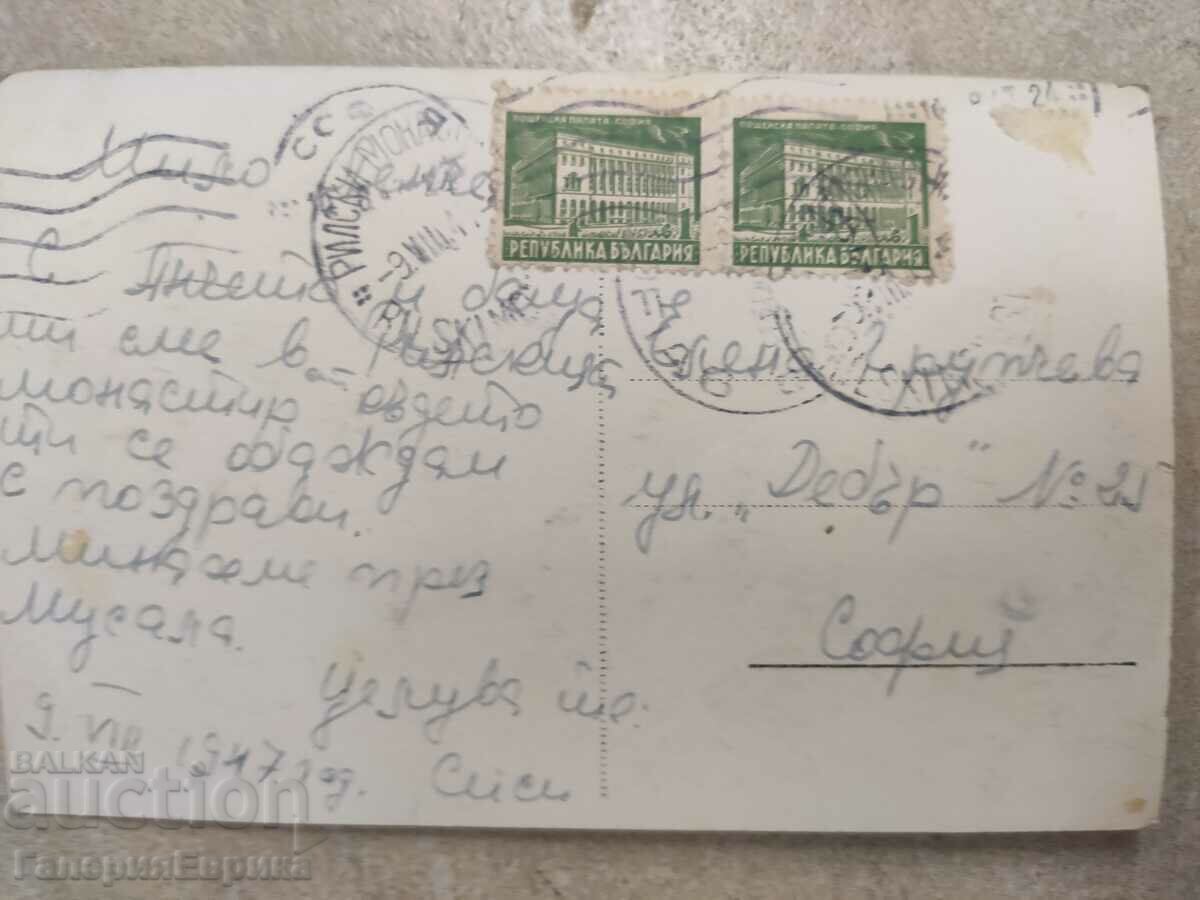 Мило
С Пнъето и баща
ми сме в Рилския
монастир отдето
ти се обаждам
с поздрави.
Минахме през
Мусала.
Целува те:
Сиси
9. VIII 1947 год.
РИЛСКИ
-9.VIII.4
RILSKI MO
ПОЩЕНСКА ПАЛАТА-СОФИЯ
1 ЛВ.
РЕПУБЛИКА БЪЛГАРИЯ
ПОЩЕНСКА ПАЛАТА-СОФИЯ
1 ЛВ.
РЕПУБЛИКА БЪЛГАРИЯ
24
Елена
ул. „Дебър" № 21
София
BALKAN
auction
ГалерияЕврика